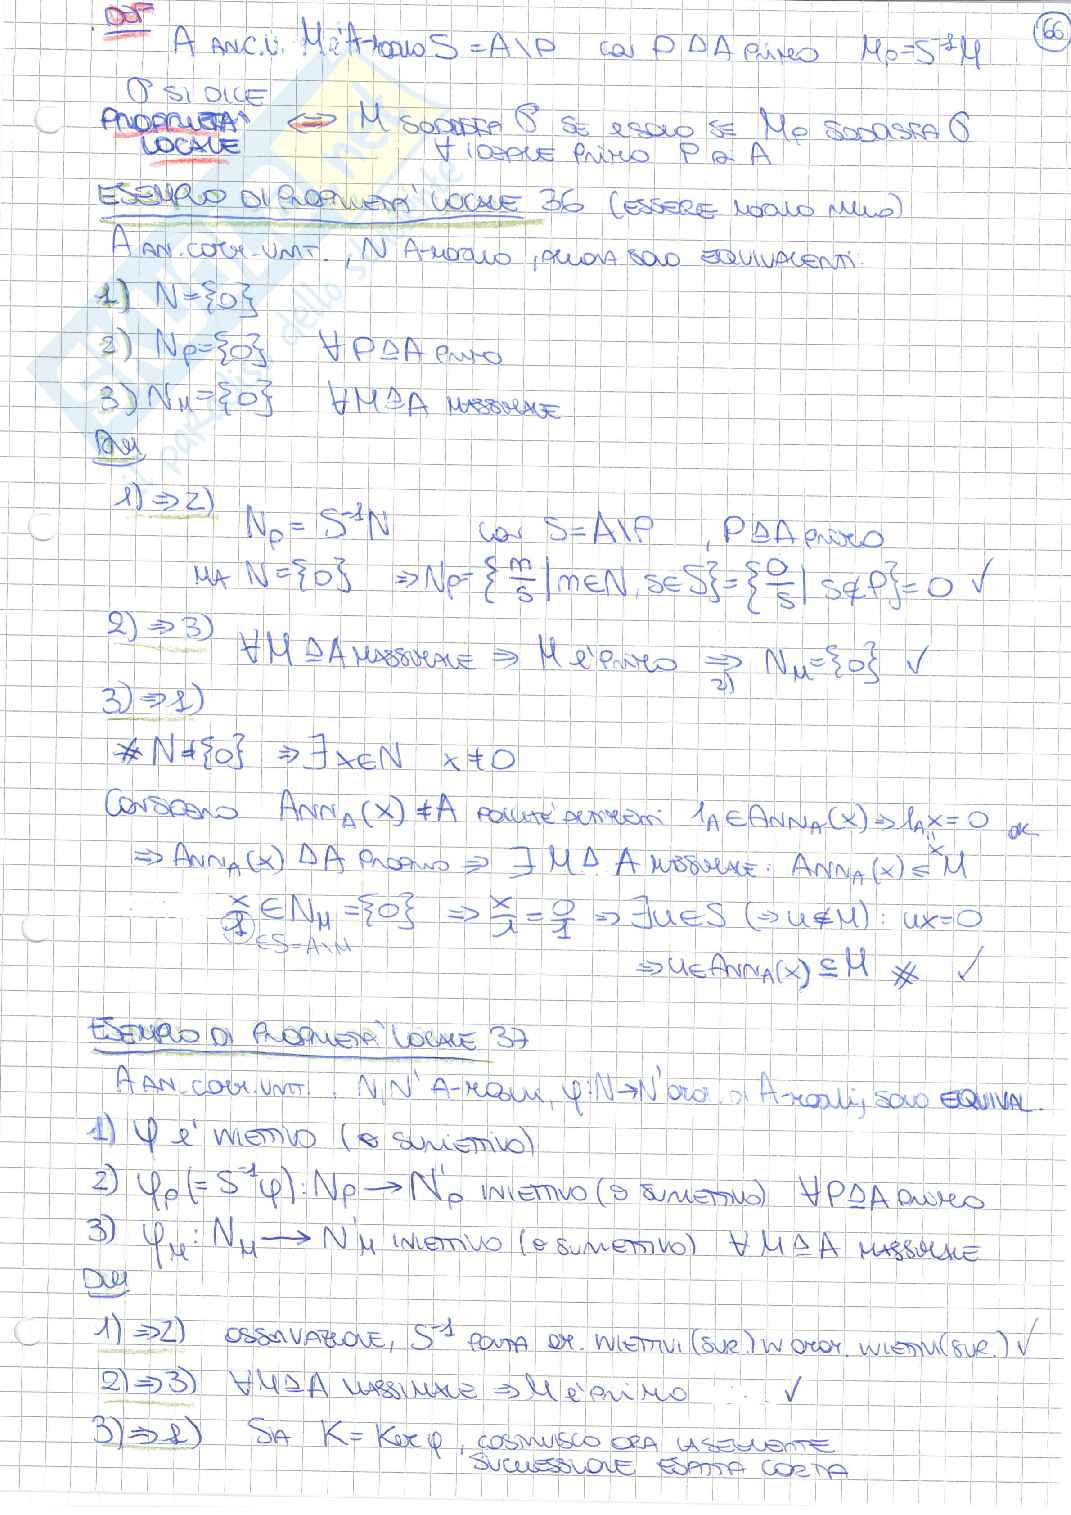 DEF
66
A AN.C.U. M è A-modulo S=A\P con P⊴A primo M_P=S⁻¹M
P SI DICE
PROPRIETA' LOCALE ⟺ M SODDISFA P SE E SOLO SE M_P SODDISFA P
∀ IDEALE primo P DI A
ESEMPIO DI PROPRIETA' LOCALE 36 (ESSERE MODULO NULLO)
A AN. COMM. UNIT., N A-MODULO, ALLORA SONO EQUIVALENTI:
1) N={0}
2) N_P={0} ∀P⊴A primo
3) N_M={0} ∀M⊴A MASSIMALE
DIM
1)⇒2)
N_P = S⁻¹N con S=A\P, P⊴A primo
MA N={0} ⇒N_P={n/s | n∈N, s∈S}={0/s | s∉P}=0 ✓
2)⇒3)
∀M⊴A MASSIMALE ⇒ M è primo ⇒ 2) N_M={0} ✓
3)⇒1)
※ N≠{0} ⇒∃x∈N x≠0
CONSIDERO ANN_A(x)≠A POICHÉ ALTRIMENTI 1_A∈ANN_A(x)⇒1_A x=0 OK
x
⇒ANN_A(x)⊴A PROPRIO ⇒ ∃M⊴A MASSIMALE: ANN_A(x)⊆M
x/1 ∈N_M={0} ⇒ x/1=0/1 ⇒∃u∈S (⇒u∉M): ux=0
∈S=A\M
⇒u∈ANN_A(x)⊆M ※ ✓
ESEMPIO DI PROPRIETA' LOCALE 37
A AN. COMM. UNIT., N,N' A-moduli, φ:N→N' omo. di A-moduli, SONO EQUIVAL.
1) φ è INIETTIVO (O SURIETTIVO)
2) φ_P(=S⁻¹φ): N_P→N'_P INIETTIVO (O SURIETTIVO) ∀P⊴A primo
3) φ_M: N_M→N'_M INIETTIVO (O SURIETTIVO) ∀M⊴A MASSIMALE
DIM
1)⇒2) OSSERVAZIONE, S⁻¹ PORTA OM. INIETTIVI (SUR.) IN OMOM. INIETTIVI (SUR.) ✓
2)⇒3) ∀M⊴A MASSIMALE ⇒ M è primo ✓
3)⇒1) SIA K=Ker φ, COSTRUISCO ORA LA SEGUENTE
SUCCESSIONE ESATTA CORTA